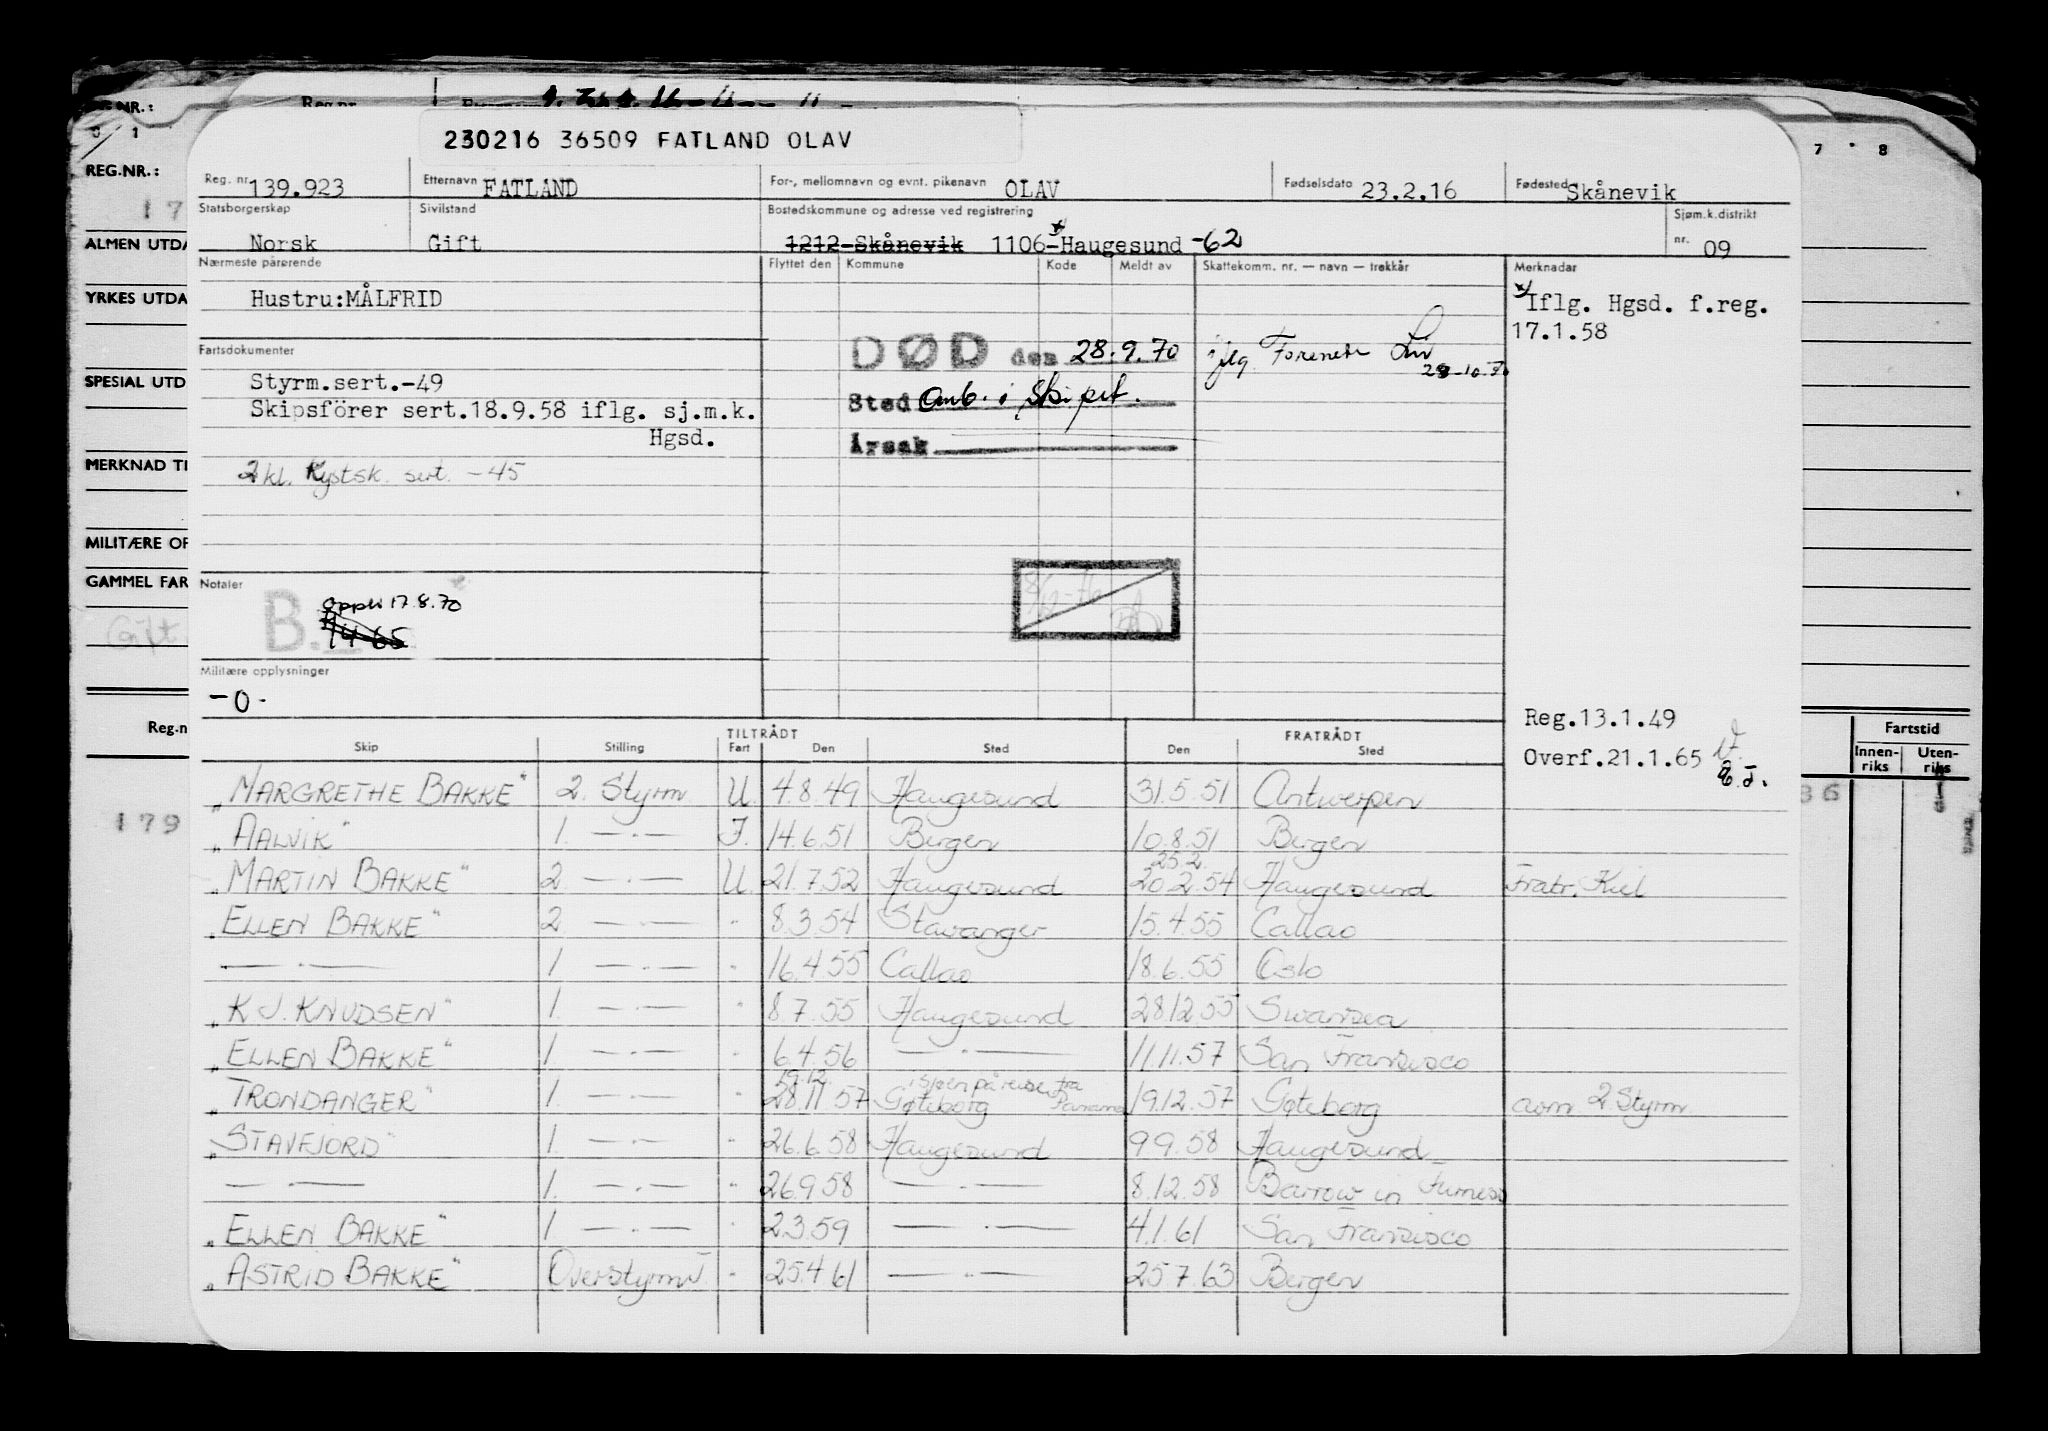 230216 36509 FATLAND OLAV
REG.NR.:
Reg. nr. 139.923 Etternavn FATLAND For-, mellomnavn og evnt. pikenavn OLAV Fødselsdato 23.2.16 Fødested Skånevik
Statsborgerskap Sivilstand Bostedskommune og adresse ved registrering Sjøm.k.distrikt
ALMEN UTDA Norsk Gift 1212-Skånevik 1106-Haugesund -62 nr. 09
Nærmeste pårørende Flyttet den Kommune Kode Meldt av Skattekomm. nr. — navn — trekkår Merknadar
YRKES UTDA Hustru:MÅLFRID Iflg. Hgsd. f.reg.
17.1.58
Fartsdokumenter DØD den 28.9.70 iflg. 28-10-70
SPESIAL UTD Styrm.sert.-49
Skipsförer sert.18.9.58 iflg. sj.m.k. Sted Omb. i skipet.
Hgsd. Årsak
MERKNAD TI 2 kl. Kystsk. sert. -45
MILITÆRE OP
GAMMEL FAR Notater
Gift B. Oppb 17.8.70
1/4 65
Militære opplysninger
-0-
Reg.13.1.49
Reg.n TILTRÅDT FRATRÅDT Fartstid
Skip Stilling Fart Den Sted Den Sted Overf.21.1.65 Innen-riks Uten-riks
"MARGRETHE BAKKE" 2. Styrm U. 4.8.49 Haugesund 31.5.51 Antwerpen
179 "AALVIK" 1. —.— I. 14.6.51 Bergen 10.8.51 Bergen
25.2.
"MARTIN BAKKE" 2. —.— U. 21.7.52 Haugesund 20.2.54 Haugesund Fratr. Kiel
"ELLEN BAKKE" 2. —.— " 8.3.54 Stavanger 15.4.55 Callao
—.— 1. —.— " 16.4.55 Callao 18.6.55 Oslo
"K J. KNUDSEN" 1. —.— " 8.7.55 Haugesund 28.12.55 Swansea
"ELLEN BAKKE" 1. —.— " 6.4.56 —.— 11.11.57 San Fransisco
19.12. i sjøen på reise fra
"TRONDANGER" 1. —.— " 28.11.57 Gøteborg Panama 19.12.57 Gøteborg som 2. Styrm.
"STAVFJORD" 1. —.— " 26.6.58 Haugesund 9.9.58 Haugesund
—.— 1. —.— " 26.9.58 —.— 8.12.58 Barrow in Furness
"ELLEN BAKKE" 1. —.— " 2.3.59 —.— 4.1.61 San Fransisco
"ASTRID BAKKE" Overstyrm. " 25.4.61 —.— 25.7.63 Bergen